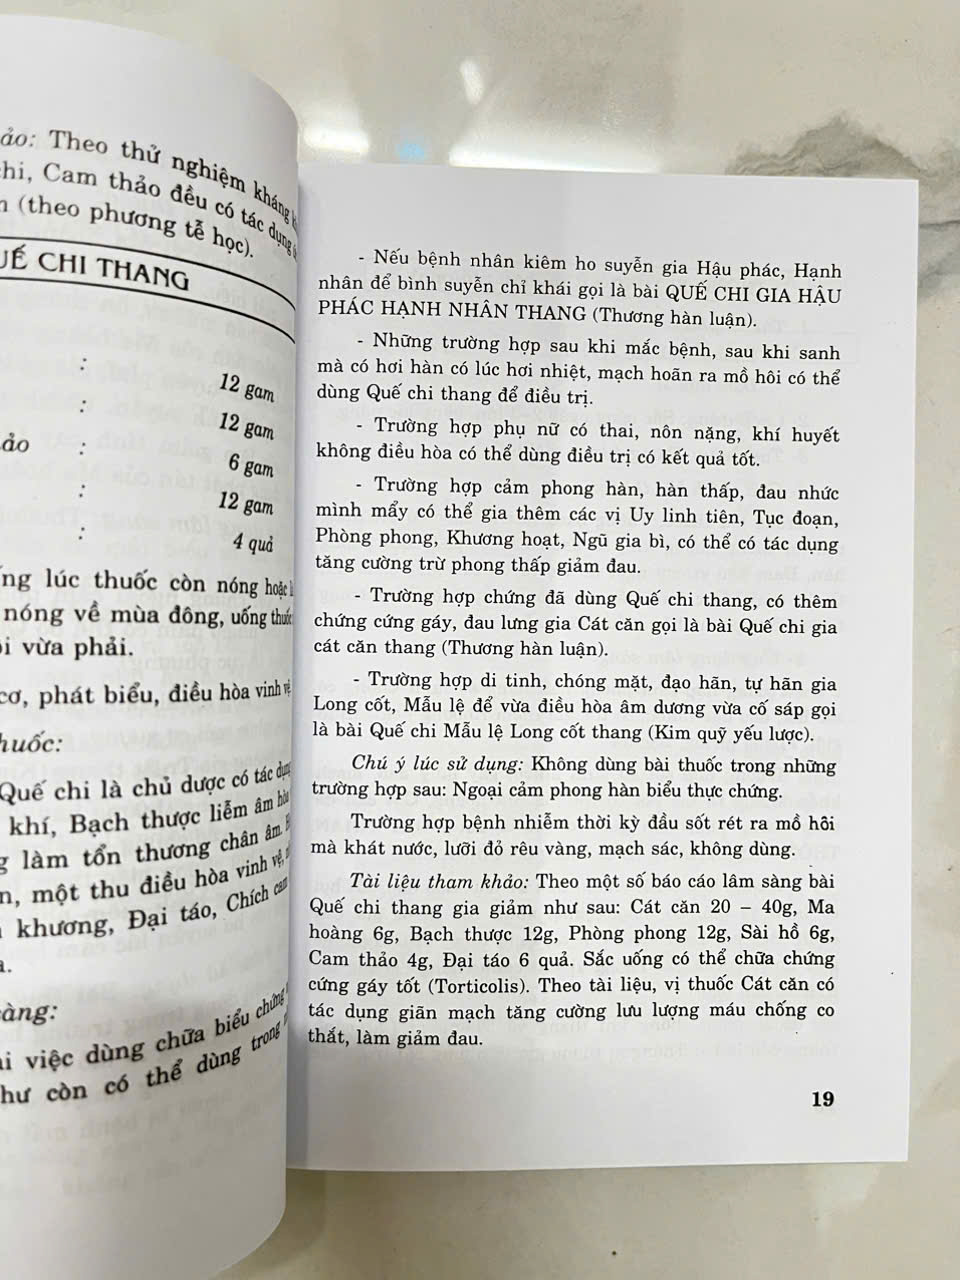 ảo: Theo thử nghiệm kháng
chi, Cam thảo đều có tác dụng
(theo phương tễ học).
QUẾ CHI THANG
: 12 gam
: 12 gam
ảo : 6 gam
: 12 gam
: 4 quả
ống lúc thuốc còn nóng hoặc
nóng về mùa đông, uống thuốc
ồi vừa phải.
cơ, phát biểu, điều hòa vinh vệ
huốc:
Quế chi là chủ dược có tác dụng
khí, Bạch thược liễm âm hòa
g làm tổn thương chân âm.
n, một thu điều hòa vinh vệ,
khương, Đại táo, Chích cam
a.
sàng:
ài việc dùng chữa biểu chứng
như còn có thể dùng trong
- Nếu bệnh nhân kiêm ho suyễn gia Hậu phác, Hạnh
nhân để bình suyễn chỉ khái gọi là bài QUẾ CHI GIA HẬU
PHÁC HẠNH NHÂN THANG (Thương hàn luận).
- Những trường hợp sau khi mắc bệnh, sau khi sanh
mà có hơi hàn có lúc hơi nhiệt, mạch hoãn ra mồ hôi có thể
dùng Quế chi thang để điều trị.
- Trường hợp phụ nữ có thai, nôn nặng, khí huyết
không điều hòa có thể dùng điều trị có kết quả tốt.
- Trường hợp cảm phong hàn, hàn thấp, đau nhức
mình mẩy có thể gia thêm các vị Uy linh tiên, Tục đoạn,
Phòng phong, Khương hoạt, Ngũ gia bì, có thể có tác dụng
tăng cường trừ phong thấp giảm đau.
- Trường hợp chứng đã dùng Quế chi thang, có thêm
chứng cứng gáy, đau lưng gia Cát căn gọi là bài Quế chi gia
cát căn thang (Thương hàn luận).
- Trường hợp di tinh, chóng mặt, đạo hãn, tự hãn gia
Long cốt, Mẫu lệ để vừa điều hòa âm dương vừa cố sáp gọi
là bài Quế chi Mẫu lệ Long cốt thang (Kim quỹ yếu lược).
Chú ý lúc sử dụng: Không dùng bài thuốc trong những
trường hợp sau: Ngoại cảm phong hàn biểu thực chứng.
Trường hợp bệnh nhiễm thời kỳ đầu sốt rét ra mồ hôi
mà khát nước, lưỡi đỏ rêu vàng, mạch sác, không dùng.
Tài liệu tham khảo: Theo một số báo cáo lâm sàng bài
Quế chi thang gia giảm như sau: Cát căn 20 – 40g, Ma
hoàng 6g, Bạch thược 12g, Phòng phong 12g, Sài hồ 6g,
Cam thảo 4g, Đại táo 6 quả. Sắc uống có thể chữa chứng
cứng gáy tốt (Torticolis). Theo tài liệu, vị thuốc Cát căn có
tác dụng giãn mạch tăng cường lưu lượng máu chống co
thắt, làm giảm đau.
19